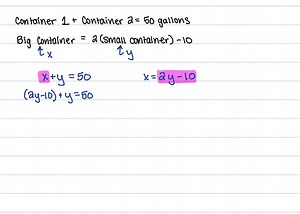 Container 1 + Container 2 = 50 gallons
Big Container = 2(small container) - 10
x y
x + y = 50 x = 2y - 10
(2y-10) + y = 50